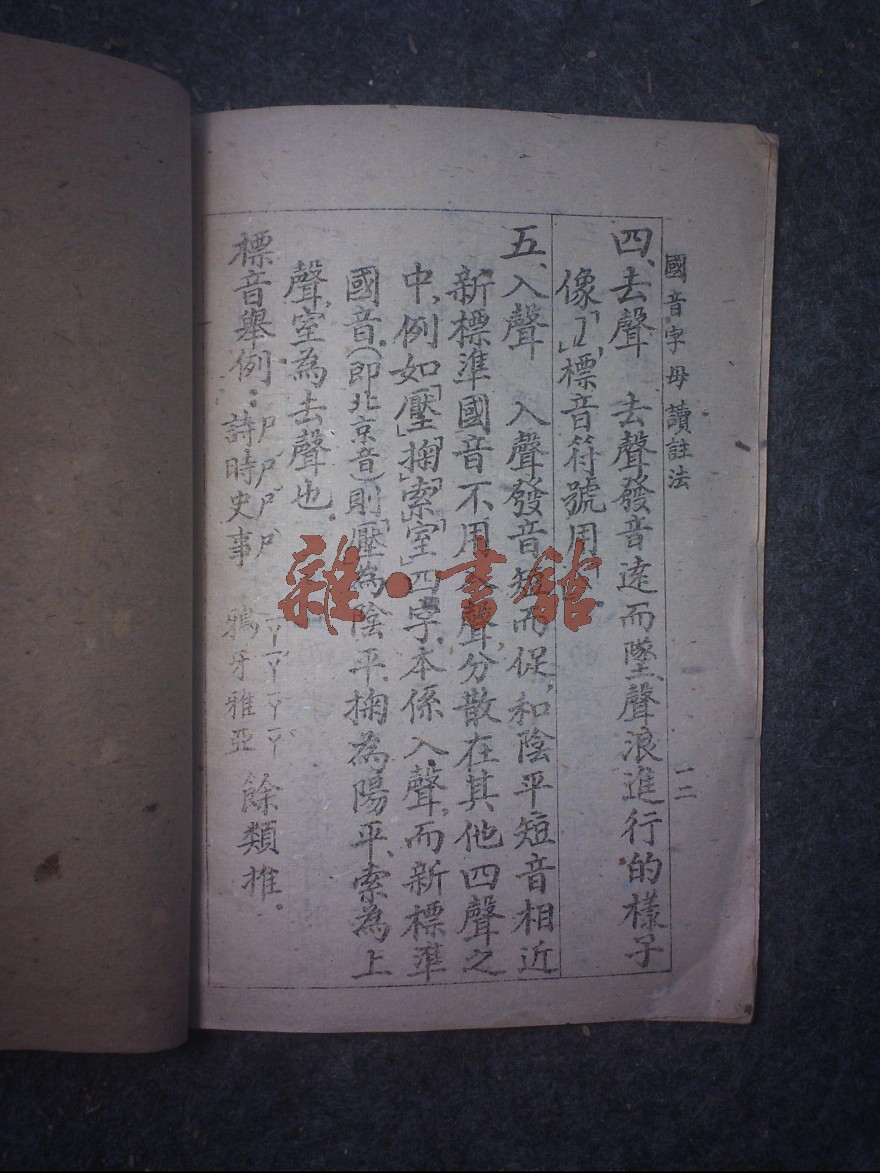 國音字母讀註法
一二
四、去聲　去聲發音遠而墜、聲浪進行的樣子
像「」，標音符號用「
五、入聲　入聲發音短而促，和陰平短音相近
新標準國音不用入聲，分散在其他四聲之
中，例如「壓」「掬」「索」「室」四字，本係入聲，而新標準
國音（即北京音）則「壓為陰平、掬為陽平、索為上
聲，室為去聲也。
標音舉例：詩時史事　鴉牙雅亞　餘類推。
ㄕㄕˊㄕˇㄕˋ　ㄧㄚㄧㄚˊㄧㄚˇㄧㄚˋ
雜·書館